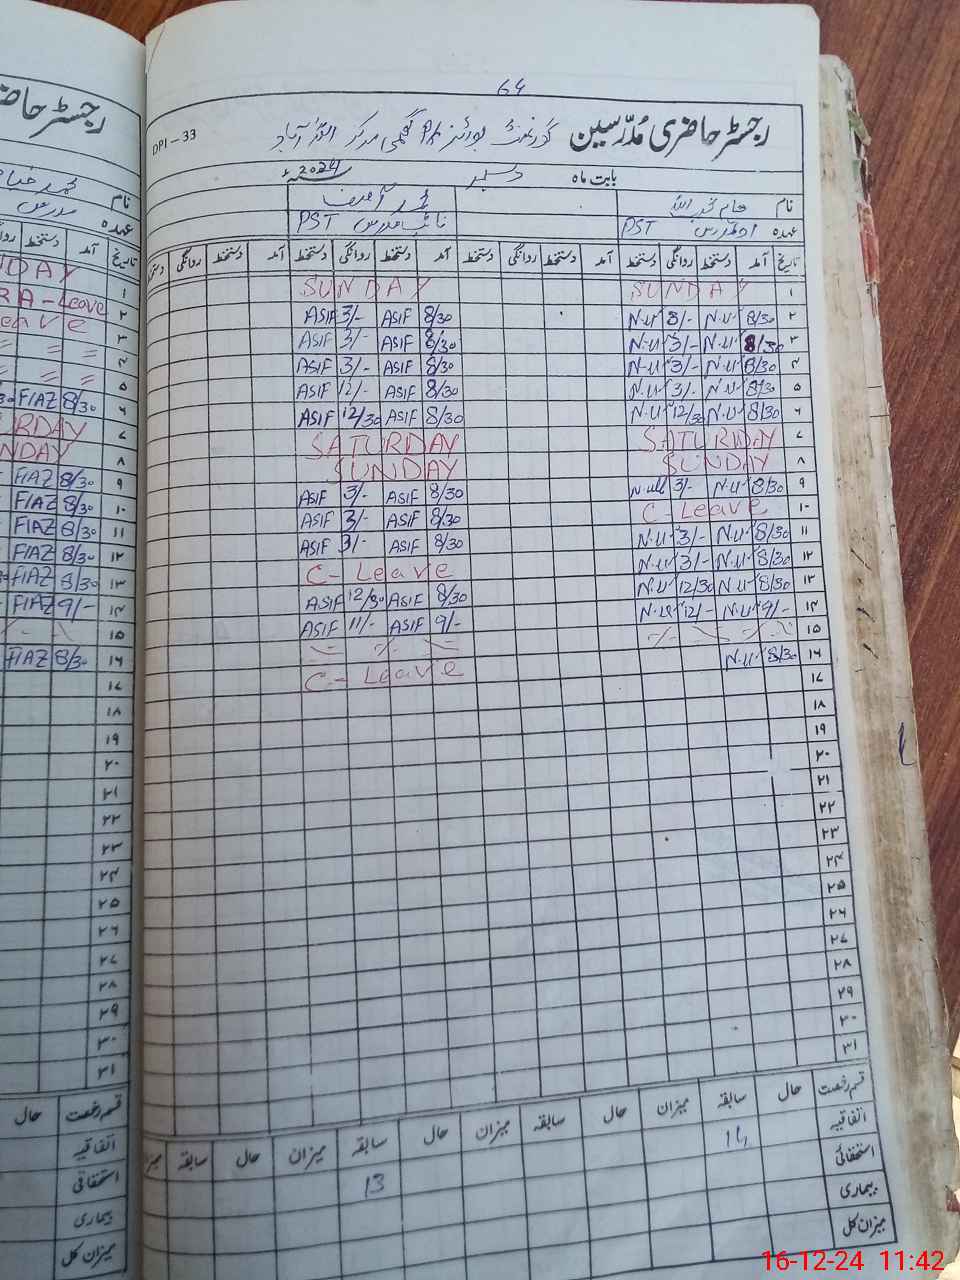 64
DPI-33
رجسٹر حاضری مُدرّسین گورنمنٹ بوائز مرکز
بابت ماہ دسمبر 2024
نام
عہدہ PST نائب مدرس PST
تاریخ آمد دستخط روانگی دستخط آمد دستخط روانگی دستخط آمد دستخط روانگی دستخط آمد دستخط روانگی
۱ SUNDAY SUNDAY
۲ 8/30 N.U 8/- N.U 8/30 ASIF 3/- ASIF
۳ 8/30 N.U 3/- N.U 8/30 ASIF 3/- ASIF
۴ 8/30 N.U 3/- N.U 8/30 ASIF 3/- ASIF
۵ 8/30 N.U 3/- N.U 8/30 ASIF 12/- ASIF
۶ 8/30 N.U 12/30 N.U 8/30 ASIF 12/30 ASIF
۷ SATURDAY SATURDAY
۸ SUNDAY SUNDAY
۹ 8/30 N.U 3/- 8/30 ASIF 3/- ASIF
۱۰ C-Leave 8/30 ASIF 3/- ASIF
۱۱ 8/30 N.U 3/- N.U 8/30 ASIF 3/- ASIF
۱۲ 8/30 N.U 3/- N.U C-Leave
۱۳ 8/30 N.U 12/30 N.U 8/30 ASIF 12/30 ASIF
۱۴ 9/- N.U 12/- N.U 9/- ASIF 11/- ASIF
۱۵
۱۶ 8/30 N.U C-Leave
۱۷
۱۸
۱۹
۲۰
۲۱
۲۲
۲۳
۲۴
۲۵
۲۶
۲۷
۲۸
۲۹
۳۰
۳۱
قسم رخصت حال سابقہ میزان حال سابقہ میزان حال سابقہ میزان حال سابقہ
اتفاقیہ 14 13
استحقاقی
بیماری
میزان کل
رجسٹر حاضری
نام
عہدہ مدرس
تاریخ آمد دستخط
۱
۲ Leave
۳
۴
۵
۶ 8/30 FIAZ
۷
۸
۹ 8/30 FIAZ
۱۰ 8/30 FIAZ
۱۱ 8/30 FIAZ
۱۲ 8/30 FIAZ
۱۳ 8/30 FIAZ
۱۴ 9/- FIAZ
۱۵
۱۶ 8/30 FIAZ
۱۷
۱۸
۱۹
۲۰
۲۱
۲۲
۲۳
۲۴
۲۵
۲۶
۲۷
۲۸
۲۹
۳۰
۳۱
قسم رخصت حال
اتفاقیہ
استحقاقی
بیماری
میزان کل
16-12-24 11:42